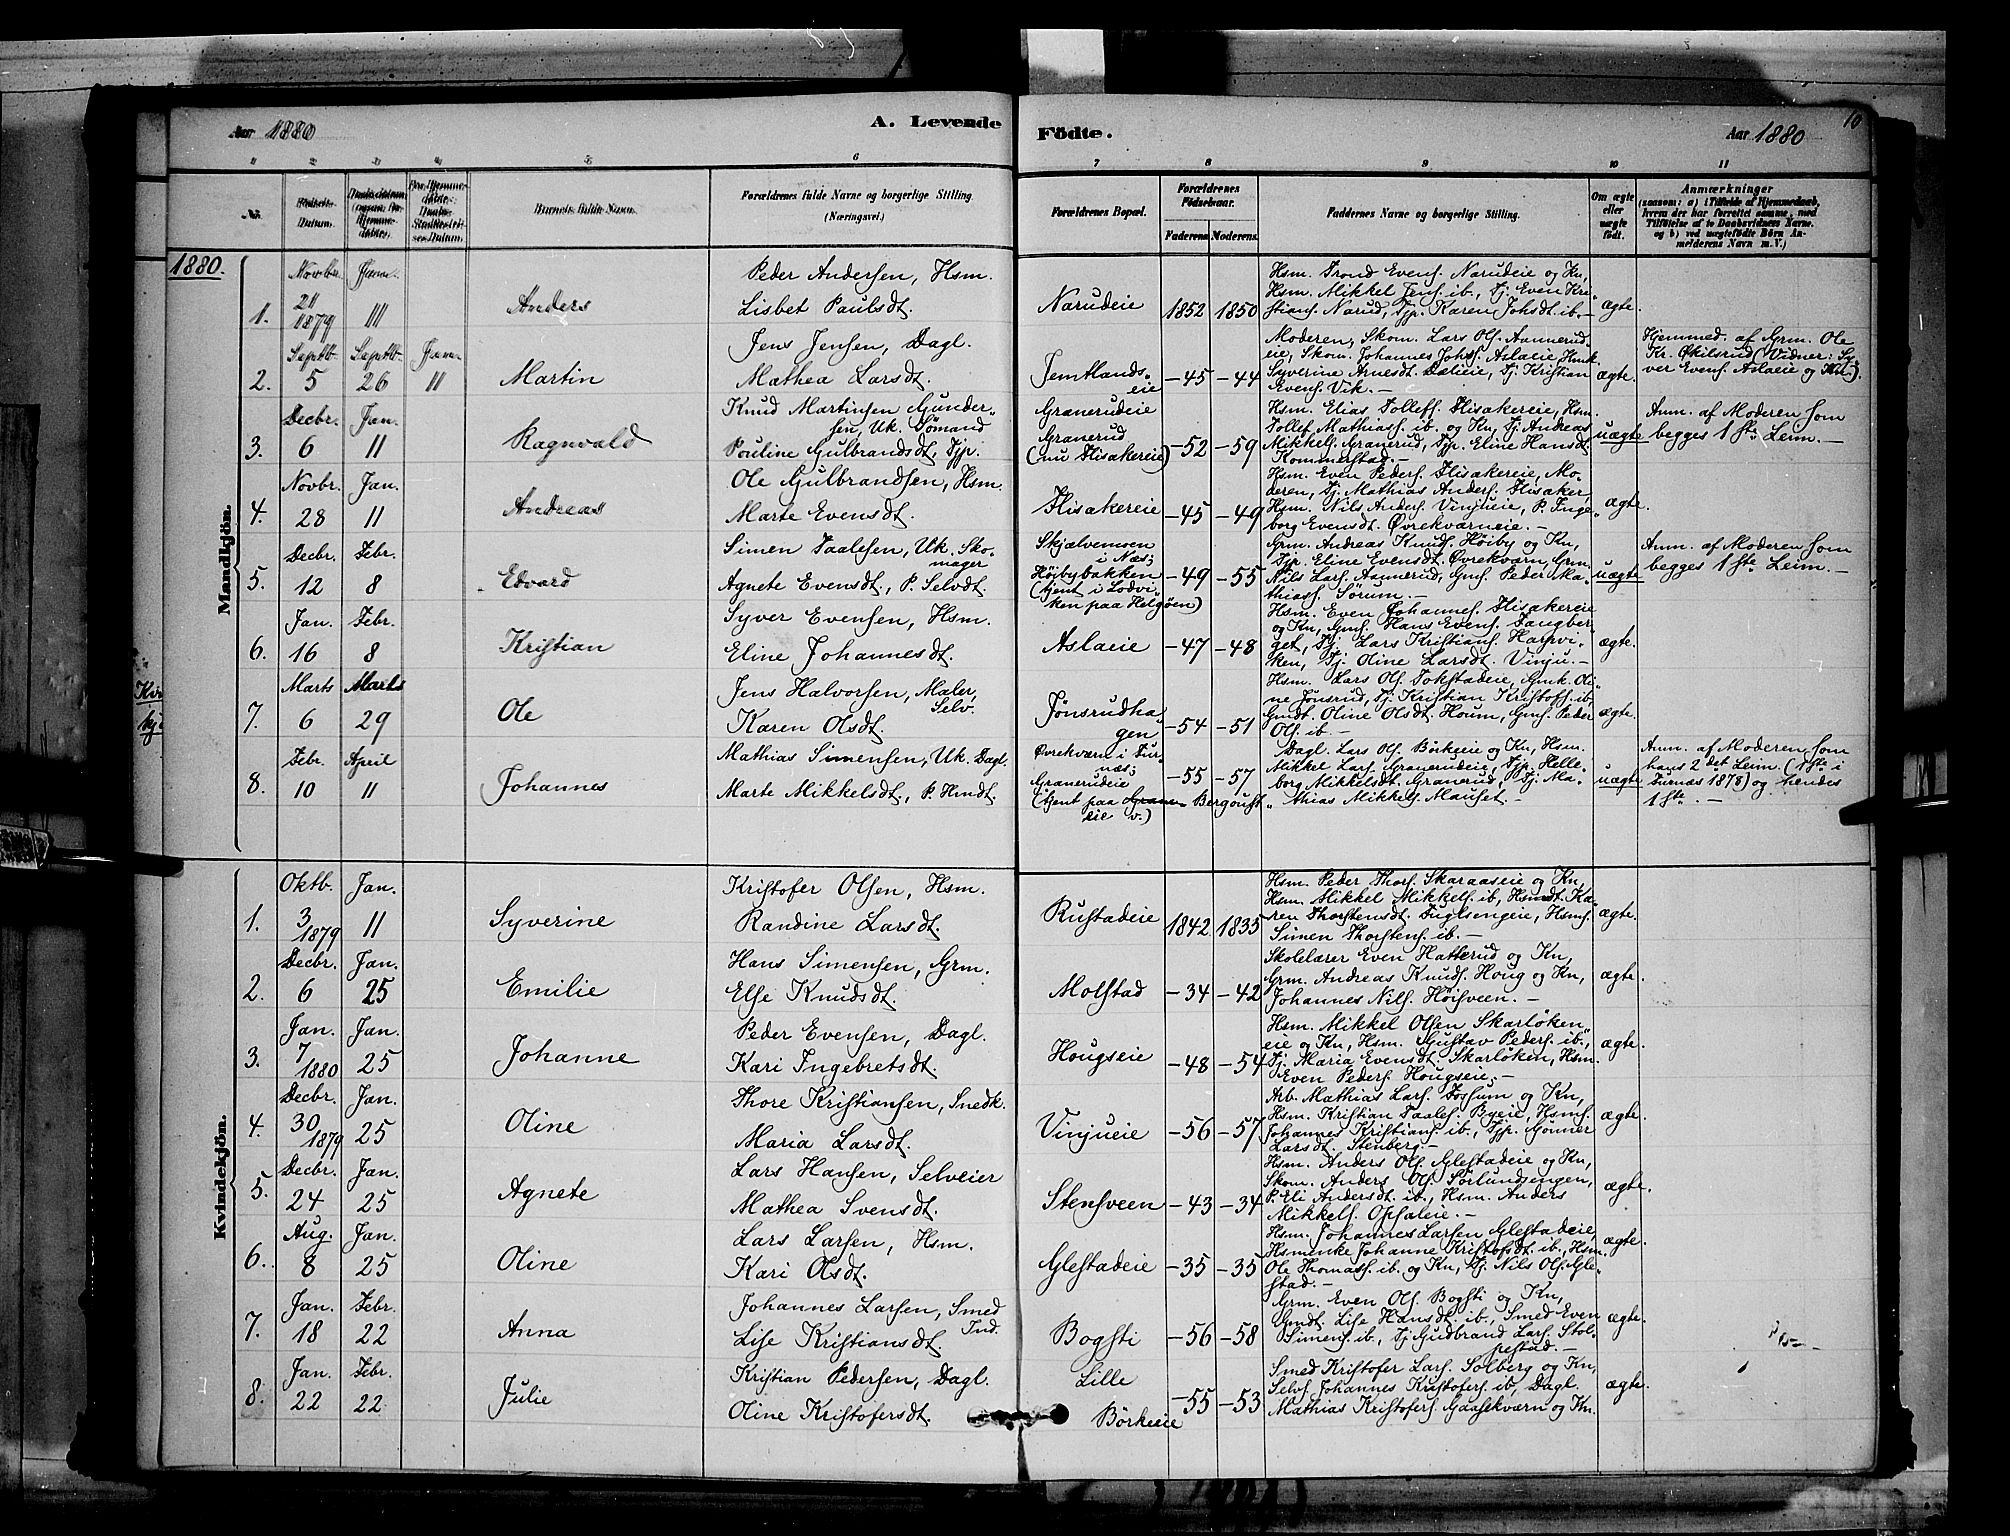 Aar 1880
A. Levende
Födte.
Aar 1880
10
1 2 3 4 5 6 7 8 9 10 11
Nr.
Födsels-Datum.
Barnets fulde Navn.
Forældrenes fulde Navne og borgerlige Stilling
(Næringsvei.)
Forældrenes Bopæl.
Forældrenes
Födselsaar.
Faderens. Moderens.
Faddernes Navne og borgerlige Stilling.
Om ægte
eller
uægte
født.
Anmærkninger
(saasom: a) i Tilfælde af Hjemmedaab,
hvem der har forrettet samme, med
Tilföielse af to Daabsvidners Navne.
og b) ved uægtefödte Börn An-
melderens Navn m.V.)
1880.
Mandkjön.
1. Novbr. 21 1879 Janr. 11 Anders
Peder Andersen, Hsm.
Lisbet Paulsdt.
Narudeie 1852 1850
Hsm. Trond Evens. Narudeie og Kn,
Hsm. Mikkel Jens. ib., Tj. Even Kri„
stians. Narud, Tjp. Karen Johsdt. ib. –
ægte.
2. Septb. 5 Septb. 26 Janr. 11 Martin
Jens Jensen, Dagl.
Mathea Larsdt.
Jemtlands„
eie
–45 –44
Moderen, Skom. Lars Ols. Aannerud„
eie, Skom. Johannes Johs. Aslaeie Hmk.
Syverine Arnesdt. Dælieie, Tj. Kristian
Evens. Vik. –
ægte.
Hjemmed. af Grm. Ole
Kr. Økilsrud (Vidner: Sy„
ver Evens. Aslaeie og Kn.).
3. Decbr. 6 Jan. 11 Ragnvald
Knud Martinsen Gunder„
sen, Uk. Sömand
Pouline Gulbrandsdt, Tjp.
Granerudeie
Granerud
(nu Flisakereie)
–52 –59
Hsm. Elias Tollefs. Flisakereie, Hsm.
Tollef Mathias. ib. og Kn, Tj. Andreas
Mikkels. Granerud, Tjp. Eline Hansdt.
Kommerstad. –
uægte
Anm. af Moderen som
begges 1ste Leim. –
4. Novbr. 28 Jan. 11 Andreas
Ole Gulbrandsen, Hsm.
Marte Evensdt.
Flisakereie –45 –49
Hsm. Even Peders. Flisakereie, Mo„
deren, Tj. Mathias Anders. Flisaker,
Hsm. Nils Anders. Vinjueie, P. Inge„
borg Evensdt. Øvrekværneie. –
ægte.
5. Decbr. 12 Febr. 8 Edvard
Simen Paalesen, Uk. Sko„
mager
Agnete Evensdt, P. Selvdt.
Skjælvemoen
i Næs;
Høibybakken
(tjent i Lodvi„
ken paa Helgøen)
–49 –55
Grm. Andreas Knuds. Høiby og Kn,
Tjp. Eline Evensdt. Øvrekværn, Grm.
Nils Lars. Aannerud, Gms. Peder Ma„
thias. Sörum. –
uægte
Anm. af Moderen som
begges 1ste Leim. –
6. Jan. 16 Febr. 8 Kristian
Syver Evensen, Hsm.
Eline Johannesdt.
Aslaeie –47 –48
Hsm. Even Johannes. Flisakereie
og Kn, Gms. Hans Evens. Taugber„
get, Tj. Lars Kristians. Harpvi„
ken, Tj. Oline Larsdt. Vinju. –
ægte.
7. Marts 6 Marts 29 Ole
Jens Halvorsen, Maler,
Selv.
Karen Olsdt.
Jønsrudha„
gen
–54 –51
Hsm. Lars Ols. Tokstadeie, Gmk. Oli„
ne Jønsrud, Tj. Kristian Kristofs. ib,
Gmdt. Oline Olsdt. Houm, Gms. Peder
Ols. ib. –
ægte.
8. Febr. 10 April 11 Johannes
Mathias Simensen, Uk. Dagl.
Marte Mikkelsdt., P. Hmdt.
Øvrekværn i Fur„
næs;
Granerudeie
(tjent paa Bergoust
eie v.)
–55 –57
Dagl. Lars Ols. Börkeeie og Kn, Hsm.
Mikkel Lars. Granerudeie, Tjp. Helle„
borg Mikkelsdt. Granerud, Tj. Ma„
thias Mikkels. Mauset. –
uægte
Anm. af Moderen som
hans 2det Leim. (1ste i
Furnæs 1878) og hendes
1ste. –
Kvindekjön.
1. Oktb. 3 1879 Jan. 11 Syverine
Kristofer Olsen, Hsm.
Randine Larsdt.
Rustadeie 1842 1835
Hsm. Peder Thors. Skaraaseie og Kn,
Hsm. Mikkel Mikkels. ib, Hsmdt. Ka„
ren Thorstensdt. Fuglsengeie, Hsms.
Simen Thorstens. ib. –
ægte.
2. Decbr. 6 Jan. 25 Emilie
Hans Simensen, Grm.
Else Knudsdt.
Molstad –34 –42
Skolelærer Even Hatterud og Kn,
Grm. Andreas Knuds. Houg og Kn,
Johannes Nils. Høisveen. –
ægte.
3. Jan. 7 1880 Jan. 25 Johanne
Peder Evensen, Dagl.
Kari Ingebretsdt.
Hougseie –48 –54
Hsm. Mikkel Olsen Skarløken„
eie og Kn, Hsm. Gustav Peders. ib.,
Tj. Maria Evensdt. Skarløken, Hsm.
Even Peders. Hougseie. –
ægte.
4. Decbr. 30 1879 Jan. 25 Oline
Thore Kristiansen, Snedk.
Maria Larsdt.
Vinjueie –56 –57
Arb. Mathias Lars. Fossum og Kn,
Hsm. Kristian Paales. Byeie, Hsms.
Johannes Kristians. ib., Tjp. Gönner
Larsdt. Stenberg –
ægte.
5. Decbr. 24 Jan. 25 Agnete
Lars Hansen, Selveier
Mathea Svensdt.
Stensveen –43 –34
Hsm. Anders Ols. Glestadeie og Kn,
Skom. Anders Ols. Sörlundengen,
P. Eli Andersdt. ib., Hsm. Anders
Mikkels. Opsaleie. –
ægte.
6. Aug. 8 Jan. 25 Oline
Lars Larsen, Hsm.
Kari Olsdt.
Glestadeie –35 –35
Hsm. Johannes Larsen Glestadeie,
Hsmenke Johanne Kristofsdt. ib., Hsm.
Ole Thomass. ib. og Kn, Tj. Nils Ols. Gle„
stad. –
ægte.
7. Jan. 18 Febr. 22 Anna
Johannes Larsen, Smed
Ind.
Lise Kristiansdt.
Bogsti –56 –58
Grm. Even Ols. Bogsti og Kn,
Gmdt. Lise Hansdt. ib., Smed Even
Simens. ib., Tj. Gudbrand Lars. Stol„
pestad. –
ægte.
8. Jan. 22 Febr. 22 Julie
Kristian Pedersen, Dagl.
Oline Kristofersdt.
Lille
Börkeeie
–55 –53
Smed Kristofer Lars. Solberg og Kn,
Selvs. Johannes Kristofers. ib, Dagl.
Mathias Kristofers. Gaasekværn og Kn.
ægte.